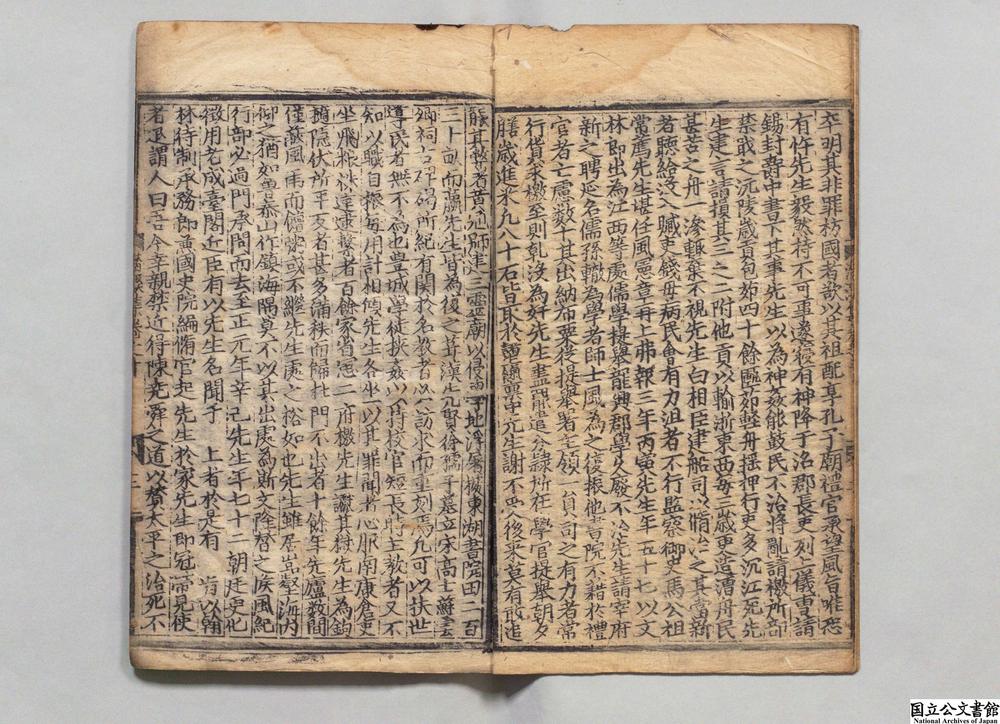 卒明其非罪枋國者欲以其祖配享孔子廟禮官承望風旨唯恐
有忤先生毅然持不可事遂寢有神降于洺郡長吏列上儀曹請
錫封爵中書下其事先生以為神姦能鼓民不治將亂請檄所部
禁戢之沅陵歲貢包茆四十餘匭茆輕舟搖押行吏多沉江死先
生建言請損其三之二附他貢以輸浙東西每歲更造漕舟民
甚苦之舟一滲輒棄不視先生白相臣建船司以脩治之其當新
者聽給沒入贓吏錢毋病民會有力沮者不行監察御史馬公祖
常薦先生堪任風憲章再上弗報三年丙寅先生年五十七以文
林郎出為江西等處儒學提舉龍興郡學久廢不治先生請宰府
新之聘延名儒孫轍為學者師士風為之復振他書院不籍於禮
官者亡慮數十其出納布粟從提舉署主領一員司之有力者常
行貨求檄至則乾沒為奸先生盡罷追分隸所在學官提舉朝夕
膳歲進米九八十石皆取於
先生謝不受後來莫有敢進
二十畝而贍先生皆為後之
徐孺子墓立宋高士蘇雲
鄉祠
碑碣所紀有關於名教者必訪求而重刻焉凡可以扶世
導民者無不為也豐城學徒
持校官短長
主教者又不
知以職自振每用計相傾先生各坐以其罪聞者心服南康
逮繫者百餘家省憲二府檄先生讞其獄先生為鉤
擿隱伏所平反者甚多滿秩而歸杜門不出者十餘年先廬數間
僅蔽風雨而儋
或不繼先生處之裕如也先生雖居巖壑海內
仰之猶如魯泰山作鎮海隅莫不以其出處為斯文隆替之候風紀
行部必過門承問而去至正元年辛巳先生年七十二朝廷更化
徵用老成臺閣近臣有以先生名聞于
上者於是有
旨以翰
林待制承務郎兼國史院編脩官起先生於家先生即冠帶見使
者退謂人曰吾今幸親禁近得陳堯舜之道以贊太平之治死不
国立公文書館
National Archives of Japan